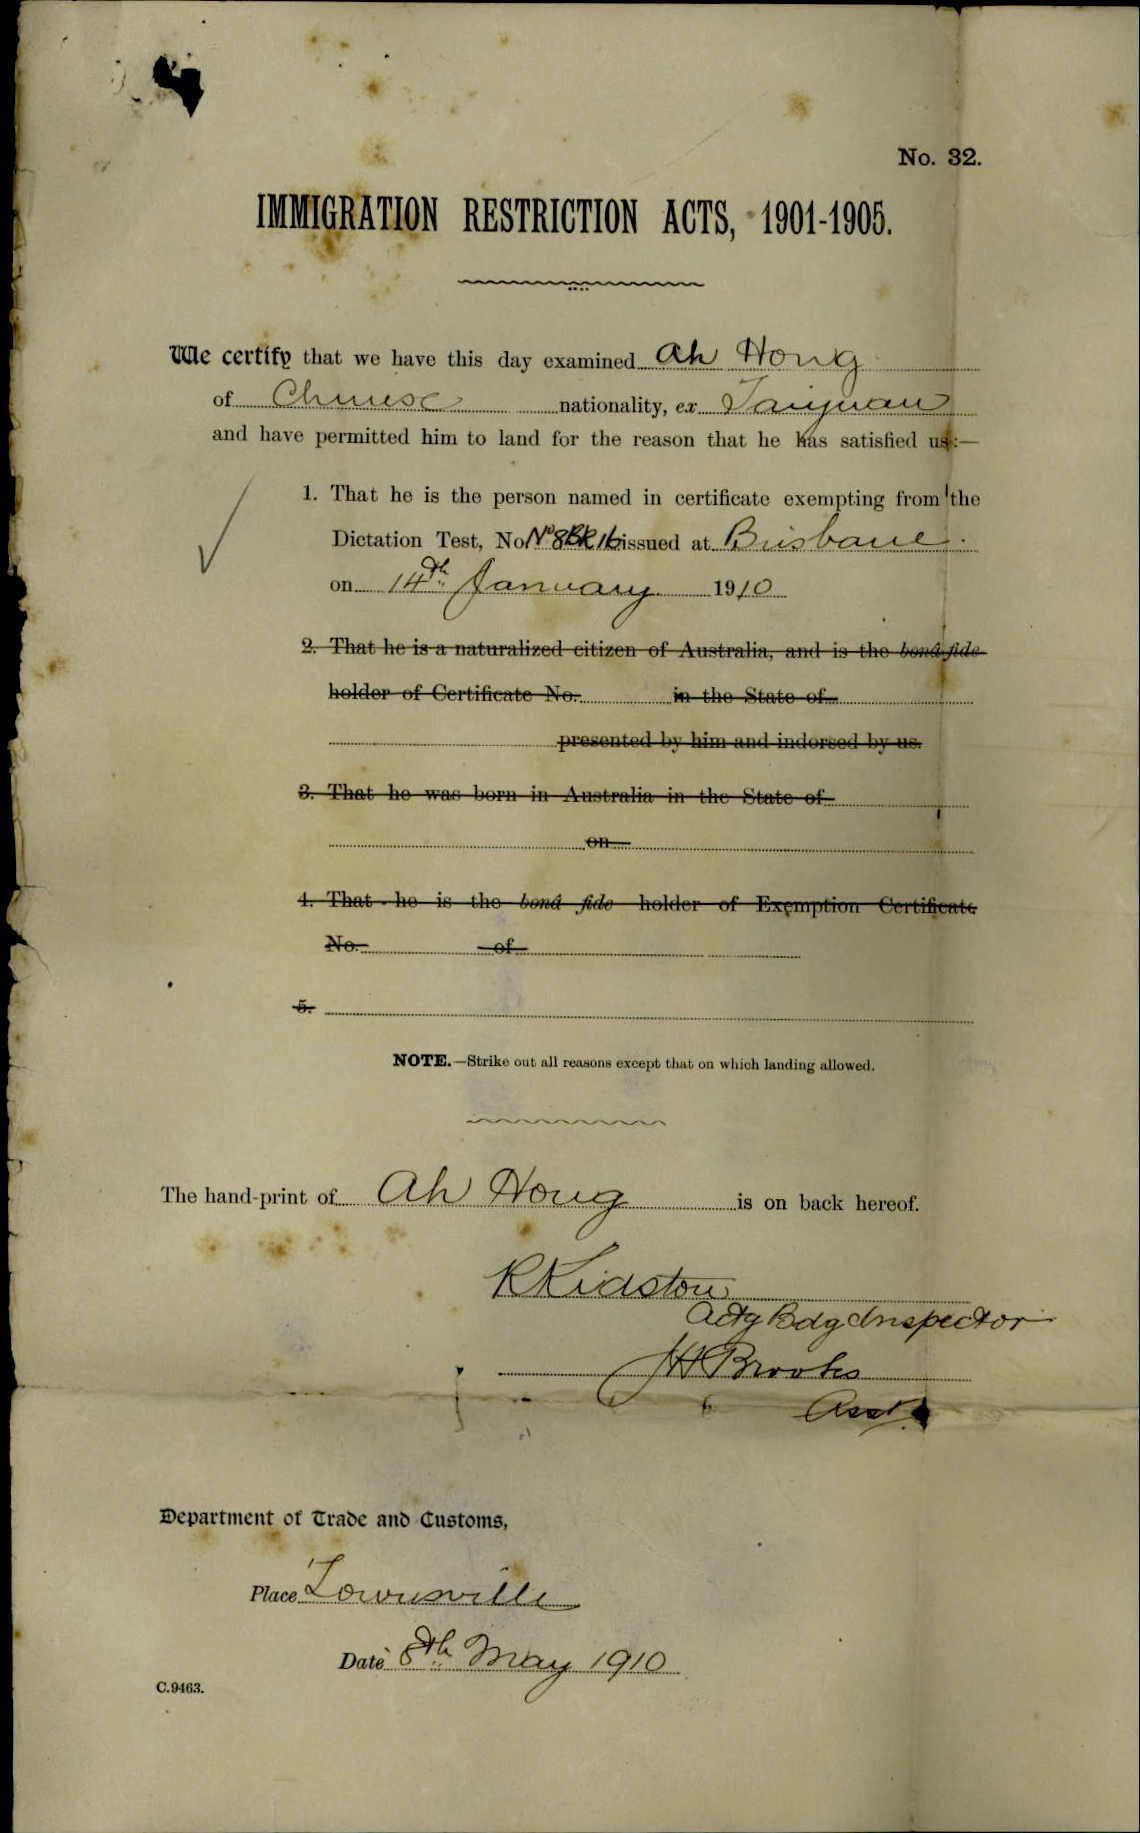 No. 32.
IMMIGRATION RESTRICTION ACTS, 1901-1905.
We certify that we have this day examined Ah Hong
of Chinese nationality, ex Taiyuan
and have permitted him to land for the reason that he has satisfied us:—
1. That he is the person named in certificate exempting from the
Dictation Test, No. issued at Brisbane.
on 14th January 1910
2. That he is a naturalized citizen of Australia, and is the bonâ fide
holder of Certificate No. in the State of
presented by him and indorsed by us.
3. That he was born in Australia in the State of
on
4. That he is the bonâ fide holder of Exemption Certificate
No. of
5.
NOTE.—Strike out all reasons except that on which landing allowed.
The hand-print of Ah Hong is on back hereof.
R Kidston
Actg Bdg Inspector
JH Brooks
Asst.
Department of Trade and Customs,
Place Townsville
Date 8th May 1910
C.9463.